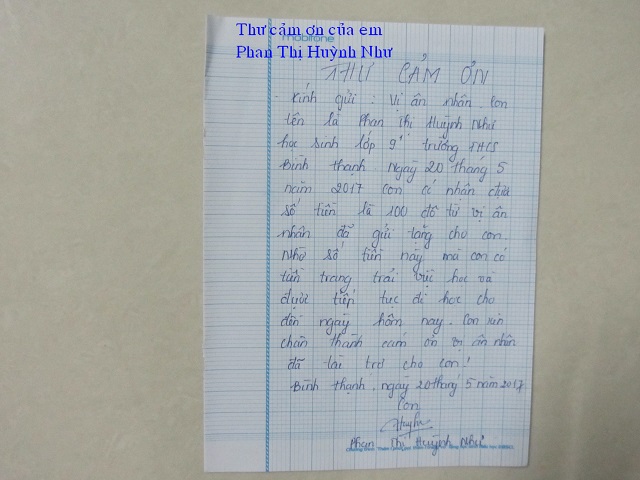 Thư cảm ơn của em
Phan Thị Huỳnh Như
mobifone
THƯ CẢM ƠN
- Kính gửi : Vị ân nhân. Con
tên là Phan Thị Huỳnh Như
học sinh lớp 9¹ trường THCS
Bình thạnh. Ngày 20 tháng 5
năm 2017 con có nhân được
số tiền là 100 đô từ vị ân
nhân đã gửi tặng cho con.
Nhờ số tiền này mà con có
tiền trang trải việc học và
được tiếp tục đi học cho
đến ngày hôm nay. Con xin
chân thành cám ơn vị ân nhân
đã tài trợ cho con!
Bình thạnh, ngày 20 tháng 5 năm 2017
Con
Phan Thị Huỳnh Như